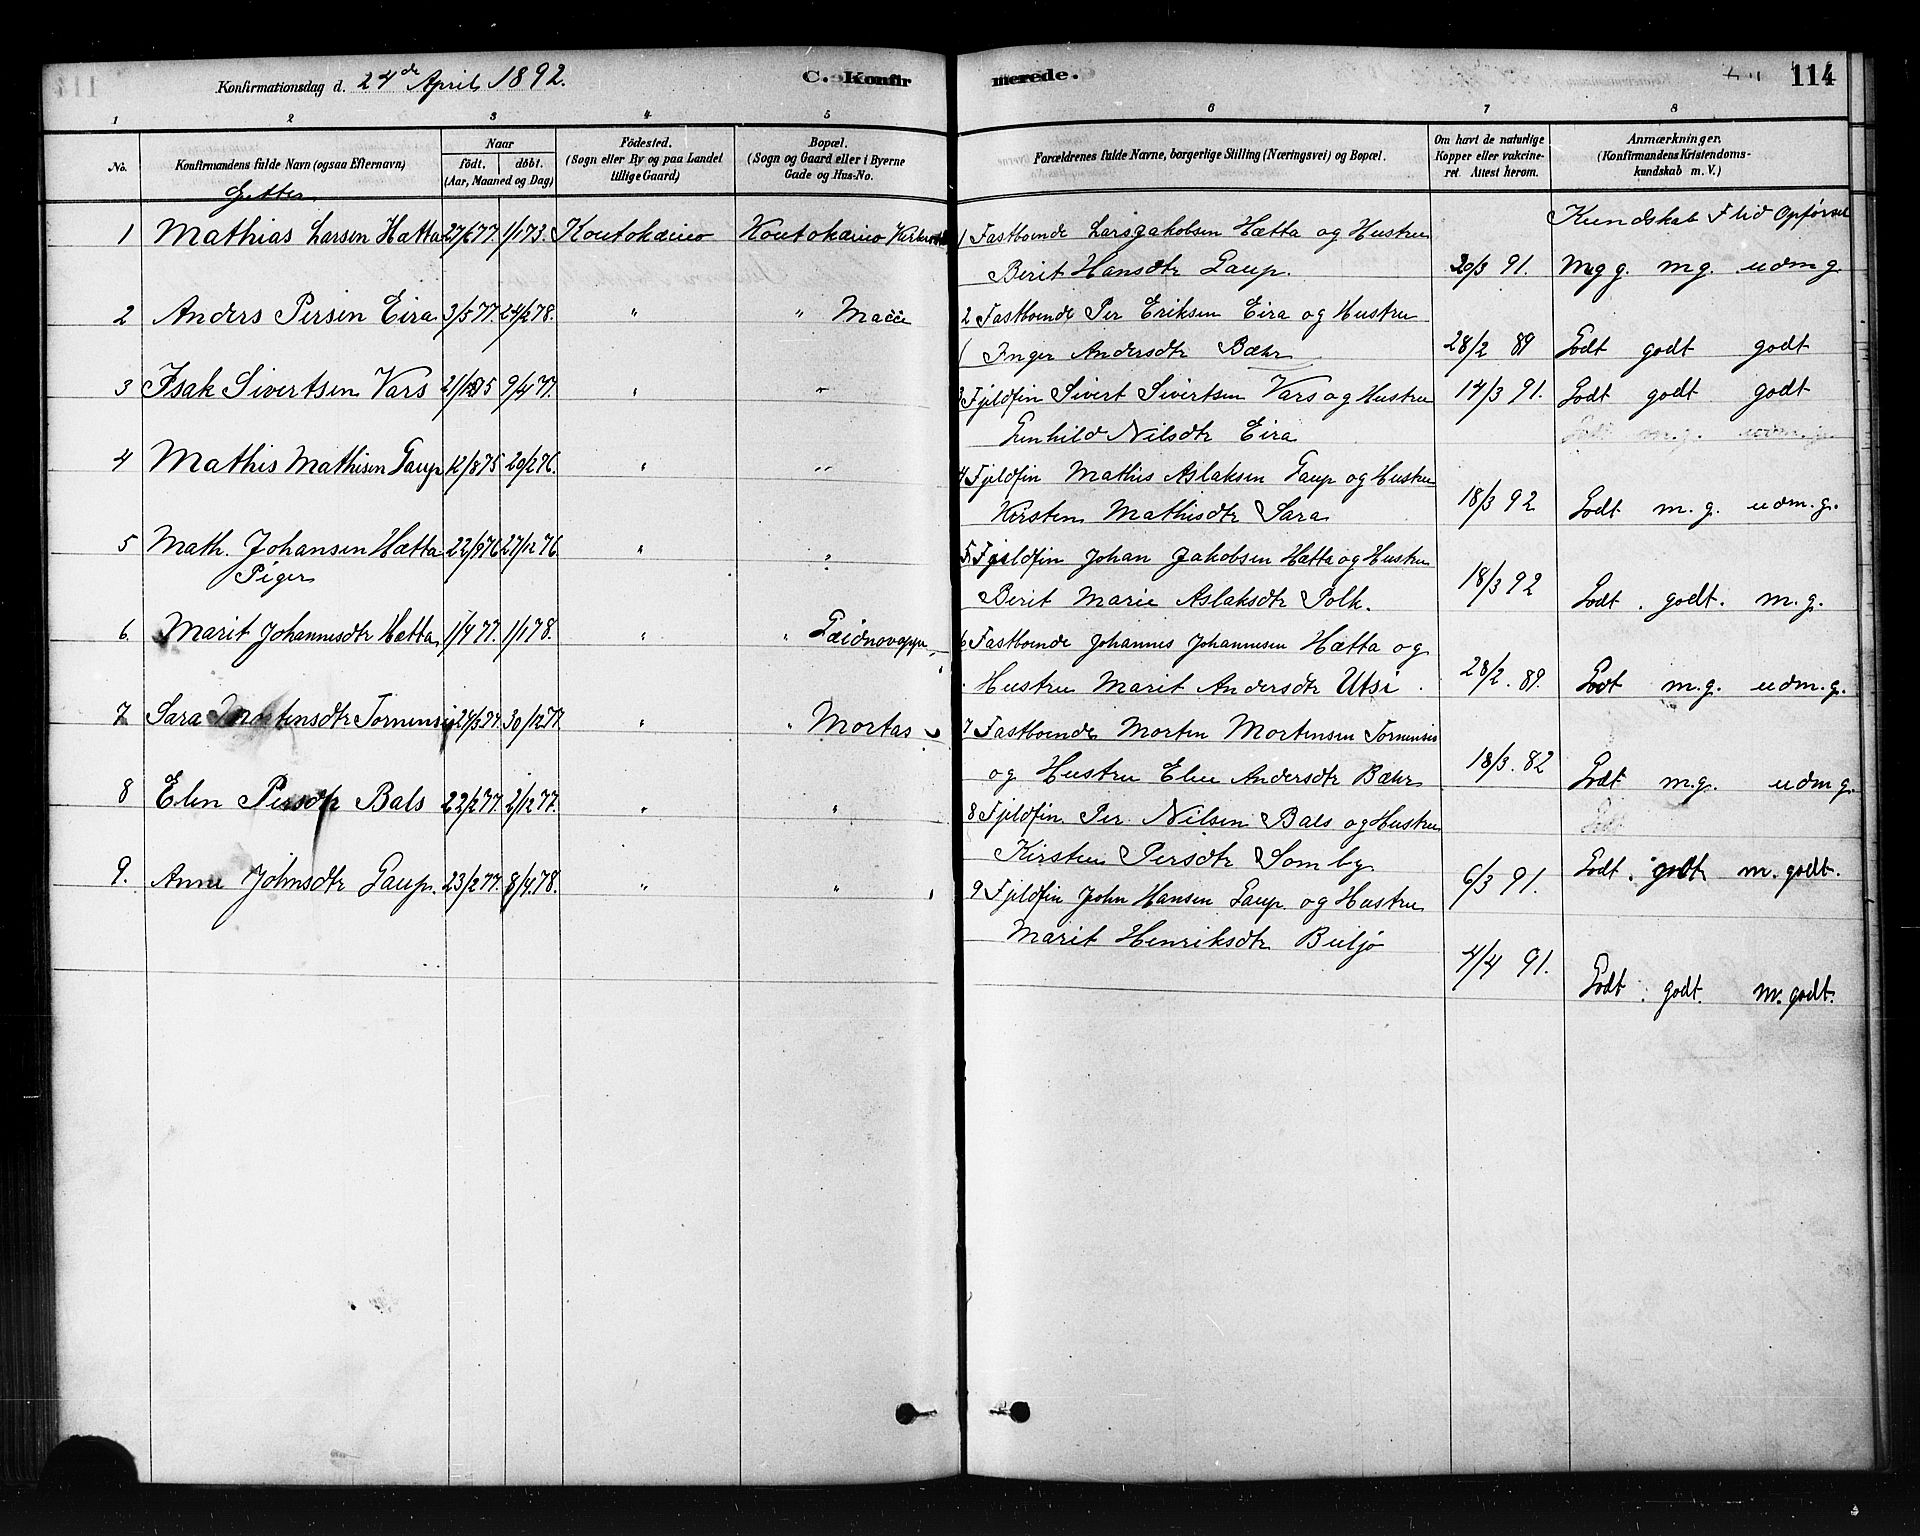 Konfirmationsdag d. 24de April 1892. C. Konfirmerede. 114
1 2 3 4 5 6 7 8
No. Konfirmandens fulde Navn (ogsaa Efternavn) Naar födt. döbt. (Aar, Maaned og Dag) Födested. (Sogn eller By og paa Landet tillige Gaard) Bopæl. (Sogn og Gaard eller i Byerne Gade og Hus-No. Forældrenes fulde Navne, borgerlige Stilling (Næringsvei) og Bopæl. Om havt de naturlige Kopper eller vakcineret. Attest herom. Anmærkninger. (Konfirmandens Kristendomskundskab m. V.)
Gutter
Kundskab Flid Opførsel
1 Mathias Larsen Hætta 27/6 77 1/1 73. Koutokæino Koutokæino 1 Fastboende Lars Jakobsen Hætta og Hustru
Berit Hansdtr Gaup. 20/3 91. Mgg. mg. udmg
2 Anders Persen Eira 3/5 77. 24/2 78. " " Macce 2 Fastboende Per Eriksen Eira og Hustru
Inger Andersdtr Bæhr 28/2 89 Godt godt godt
3 Isak Sivertsen Vars 9/4 77. " " 3 Fjeldfin Sivert Sivertsen Vars og Hustru 14/3 91. Godt godt godt
Gunhild Nilsdtr Eira Godt m.g. udm.g.
4 Mathis Mathisen Gaup 12/8 75 20/2 76. " " 4 Fjeldfin Mathis Aslaksen Gaup og Hustru
Kirsten Mathisdtr Sara 18/3 92 Godt m.g. udm.g.
5 Math. Johansen Hætta 22/9 76 27/12 76. " " 5 Fjeldfin Johan Jakobsen Hætta og Hustru
Piger Berit Marie Aslaksdtr Polk. 18/3 92 Godt. godt. m.g.
6. Marit Johannesdtr Hætta 1/4 77. 1/1 78. " " 6 Fastboende Johannes Johannesen Hætta og
Hustru Marit Andersdtr Utsi. 28/2. 89. Godt m.g. udm.g.
7 Sara Mortensdtr Tornensis 30/12 77. " " Mortas 7 Fastboende Morten Mortensen Tornensis
og Hustru Elen Andersdtr Bæhr 18/3. 82 Godt m.g. udmg.
8 Elen Persdtr Bals 22/2 77. 2/12 77. " " 8 Fjeldfin Per Nilsen Bals og Hustru Godt
Kirsten Persdtr Somby 6/3 91. Godt. godt m. godt.
9. Anne Johnsdtr Gaup. 23/2 77. 8/4 78. " " 9 Fjeldfin John Hansen Gaup og Hustru
Marit Henriksdtr Buljo 4/4 91. Godt. godt. m. godt.